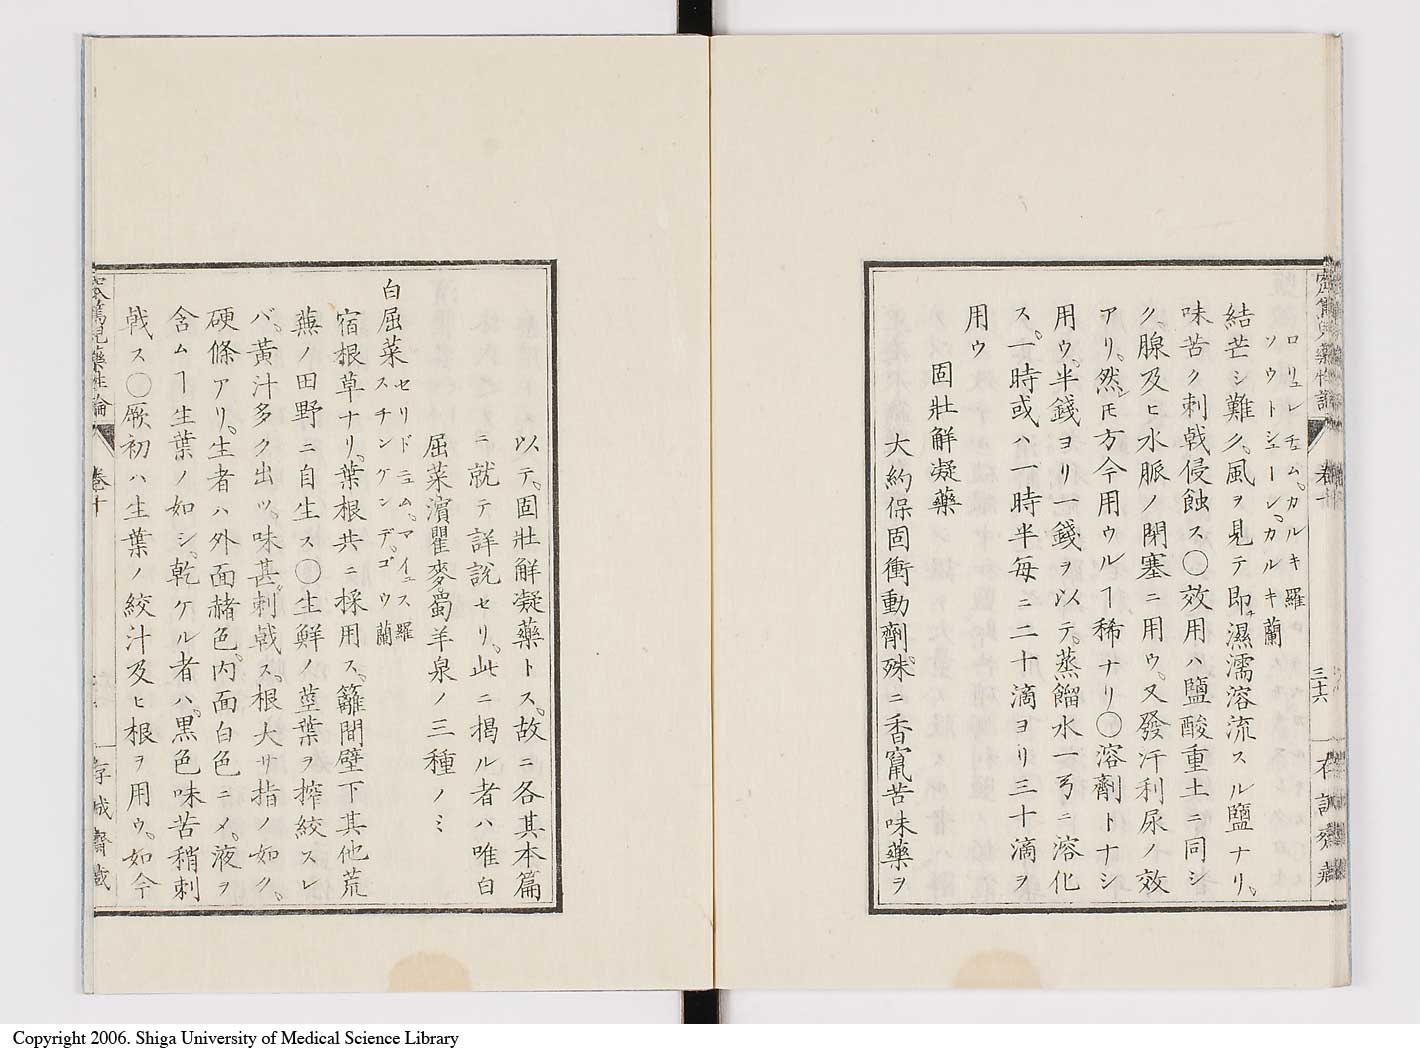 ロリュレチュム。カルキ 羅
ソウトシューレ。カルキ 蘭
結芒シ難ク。風ヲ見テ即チ濕濡溶流スル鹽ナリ。
味苦ク刺戟侵蝕ス〇效用ハ鹽酸重土ニ同シ
ク。腺及ヒ水脈ノ閉塞ニ用ウ。又發汗利尿ノ效
アリ。然𪜈方今用ウルヿ稀ナリ〇溶劑トナシ
用ウ。半錢ヨリ一錢ヲ以テ。蒸餾水一弓ニ溶化
ス。一時或ハ一時半毎ニ二十滴ヨリ三十滴ヲ
用ウ
固壯解凝藥
大約保固衝動劑。殊ニ香竄苦味藥ヲ
三十六
以テ。固壯解凝藥トス。故ニ各其本篇
ニ就テ詳說セリ。此ニ揭ル者ハ唯白
屈菜濱瞿麥蜀羊泉ノ三種ノミ
白屈菜 セリドニュム。マイュス 羅
スチンケンデ。ゴウ 蘭
宿根草ナリ。葉根共ニ採用ス。籬間壁下其他荒
蕪ノ田野ニ自生ス〇生鮮ノ莖葉ヲ搾絞スレ
バ。黃汁多ク出ツ。味甚タ刺戟ス。根大サ指ノ如ク。
硬條アリ。生者ハ外面赭色。內面白色ニメ。液ヲ
含ムヿ生葉ノ如シ。乾ケル者ハ。黑色味苦稍刺
戟ス〇厥初ハ生葉ノ絞汁及ヒ根ヲ用ウ。如今
窊篤兒藥性論 卷十
存誠齋藏